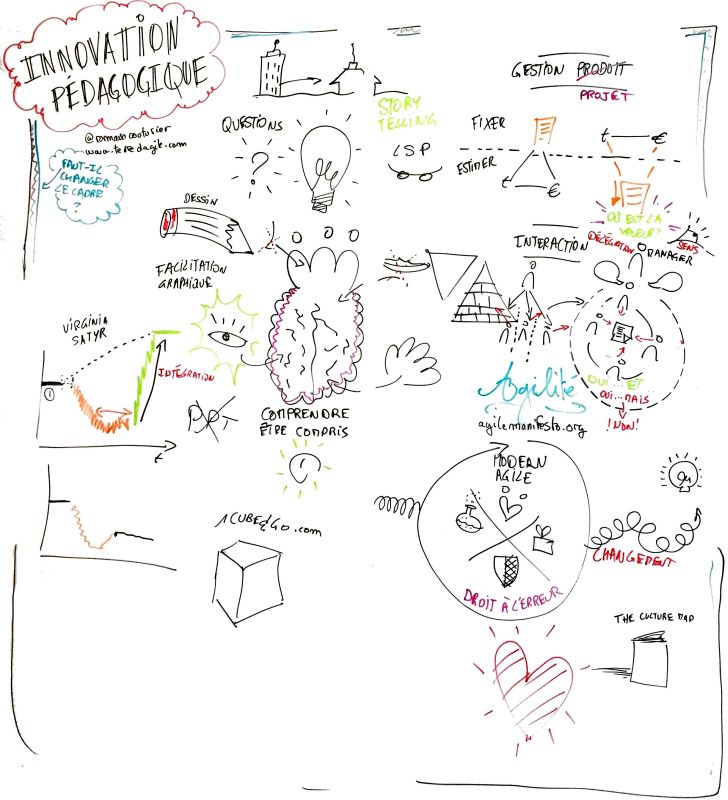 INNOVATION
PÉDAGOGIQUE
@romaincouturier
www.terredagile.com
FAUT-IL
CHANGER
LE CADRE
?
QUESTIONS
?
DESSIN
FACILITATION
GRAPHIQUE
VIRGINIA
SATYR
INTÉGRATION
1
t
COMPRENDRE
ÊTRE COMPRIS
1CUBE2GO.com
STORY
TELLING
LSP
GESTION PRODUIT
PROJET
FIXER
ESTIMER
t
€
t
€
OÙ EST LA
VALEUR?
INTERACTION
DÉLÉGATION
SENS
MANAGER
OUI... ET
OUI... MAIS
!NON!
Agilité
agilemanifesto.org
MODERN
AGILE
DROIT À L'ERREUR
CHANGEMENT
THE CULTURE MAP